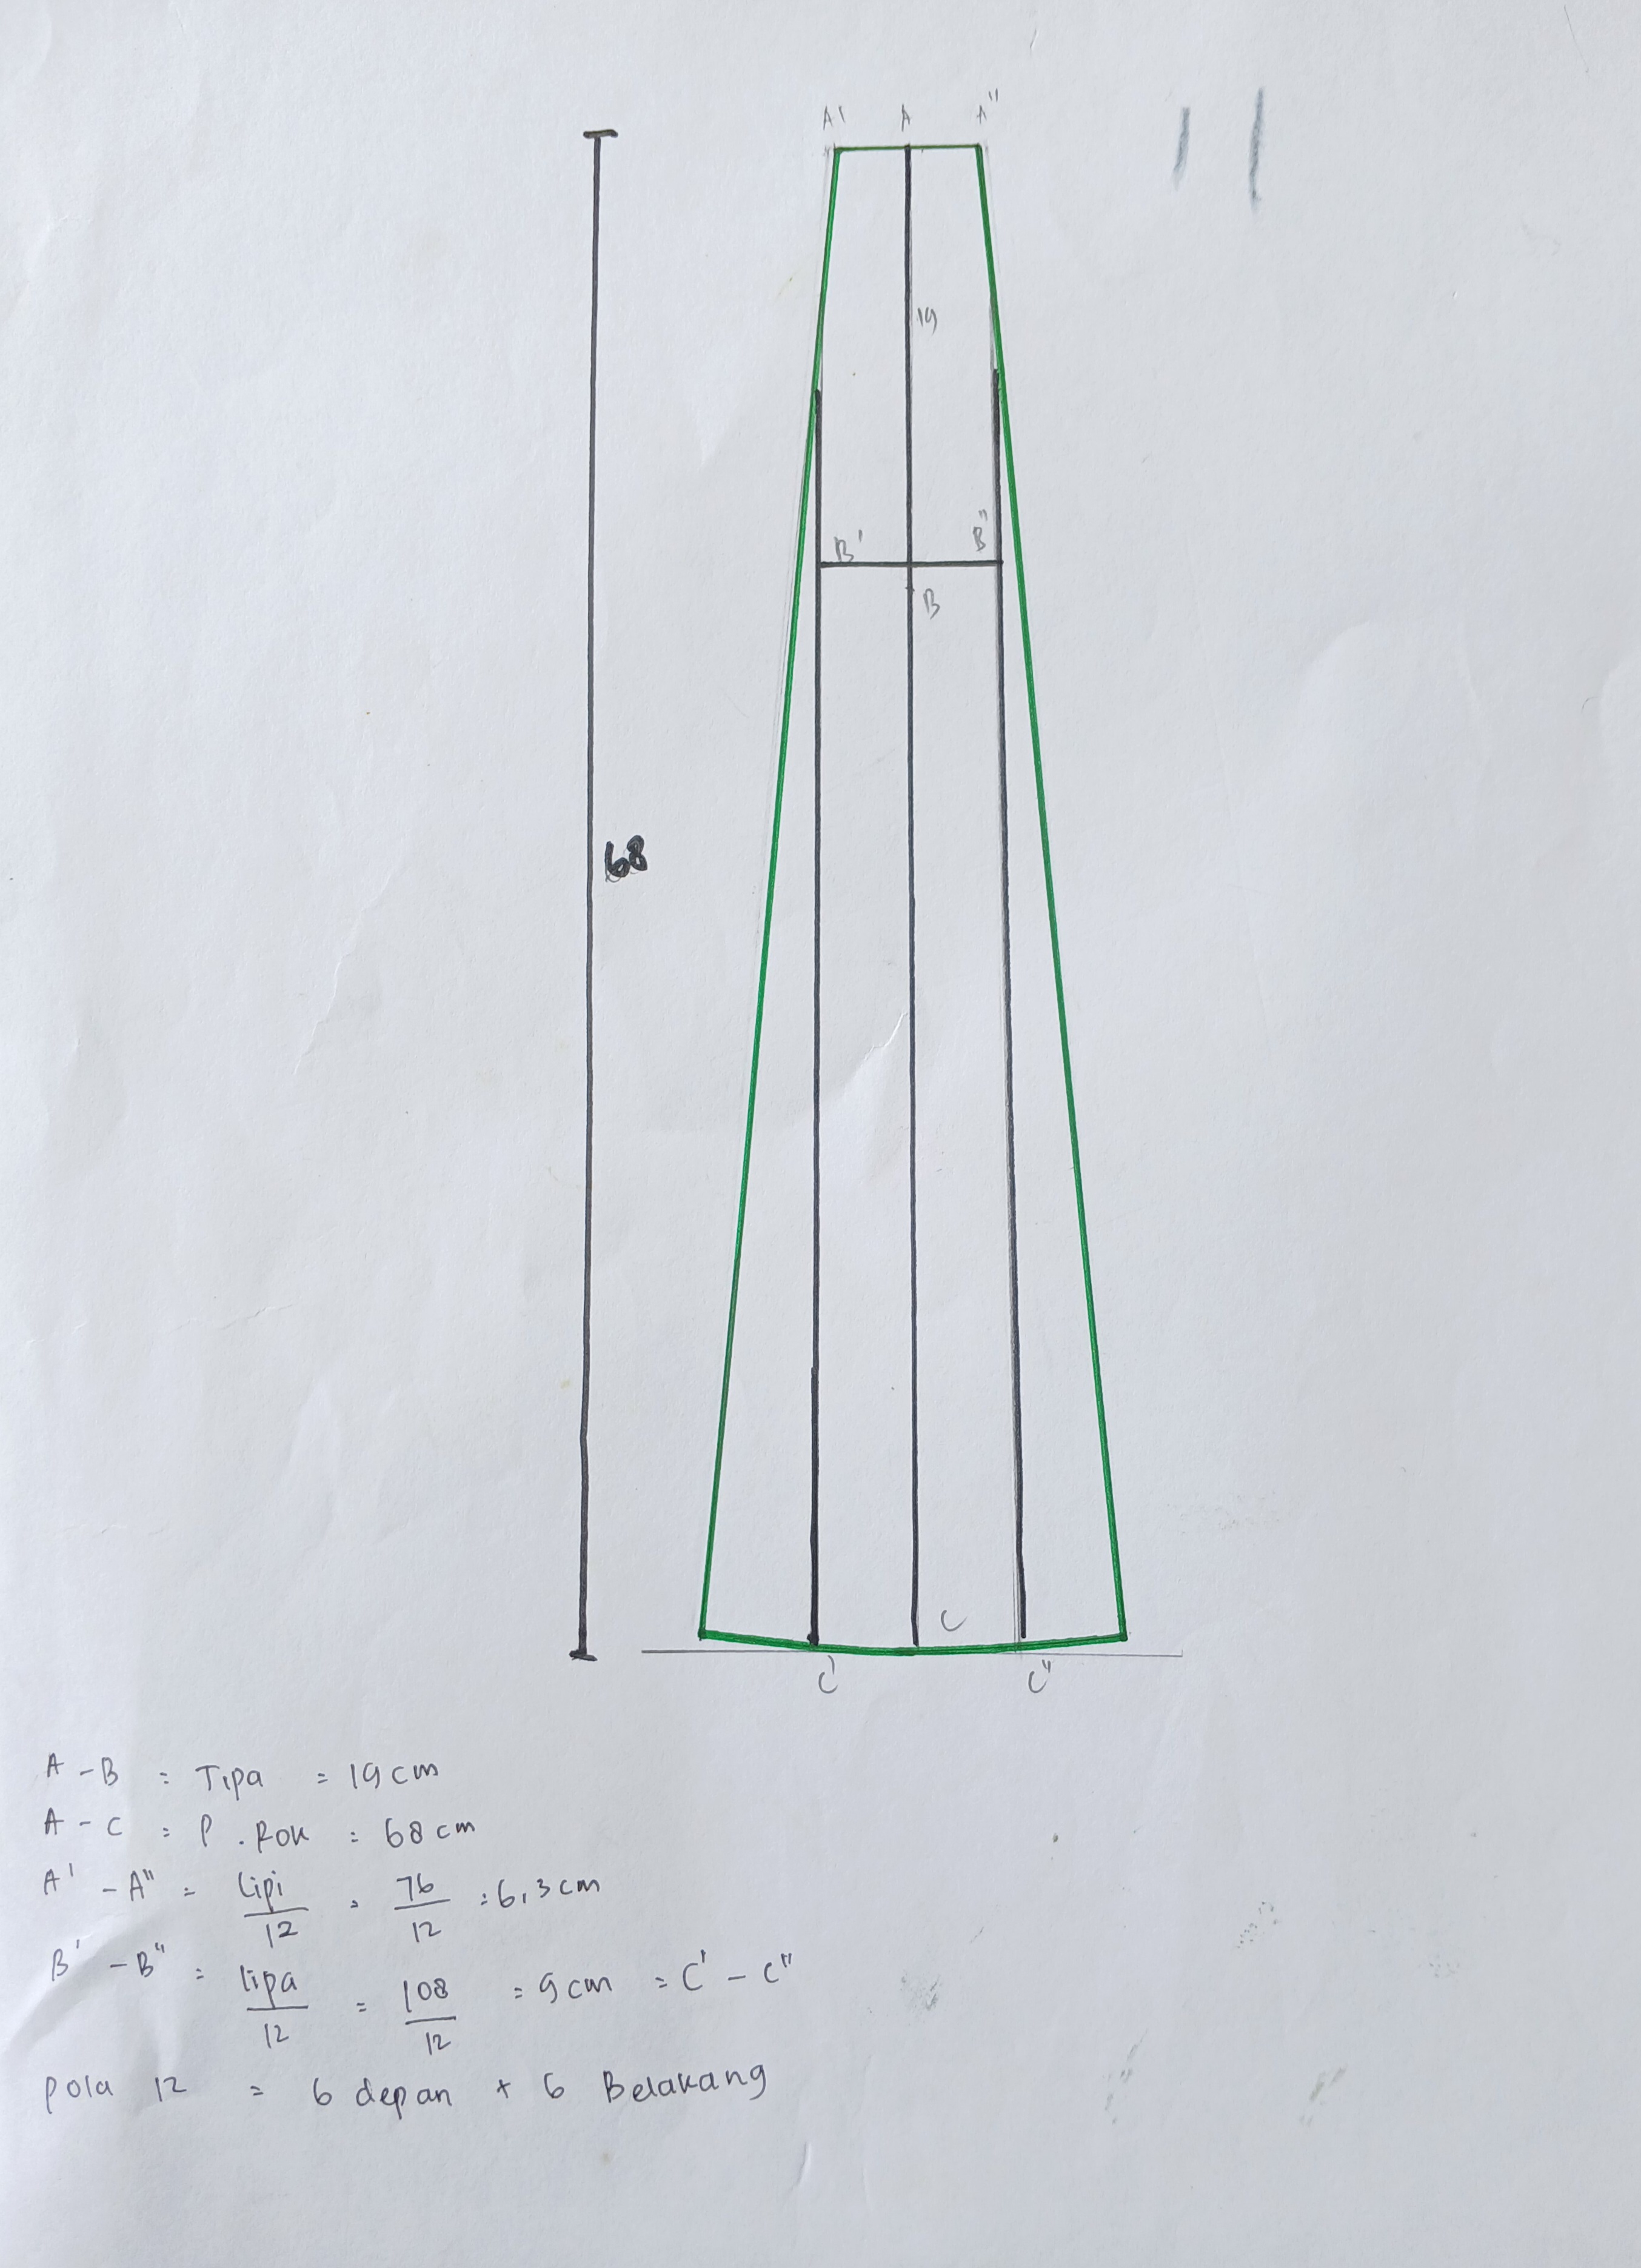 A' A A"
19
B' B"
B
68
C
C' C"
A - B = Tipa = 19 cm
A - C = P. Rok = 68 cm
A' - A" = Lipi/12 = 76/12 = 6,3 cm
B' - B" = lipa/12 = 108/12 = 9 cm = C' - C"
pola 12 = 6 depan + 6 Belakang